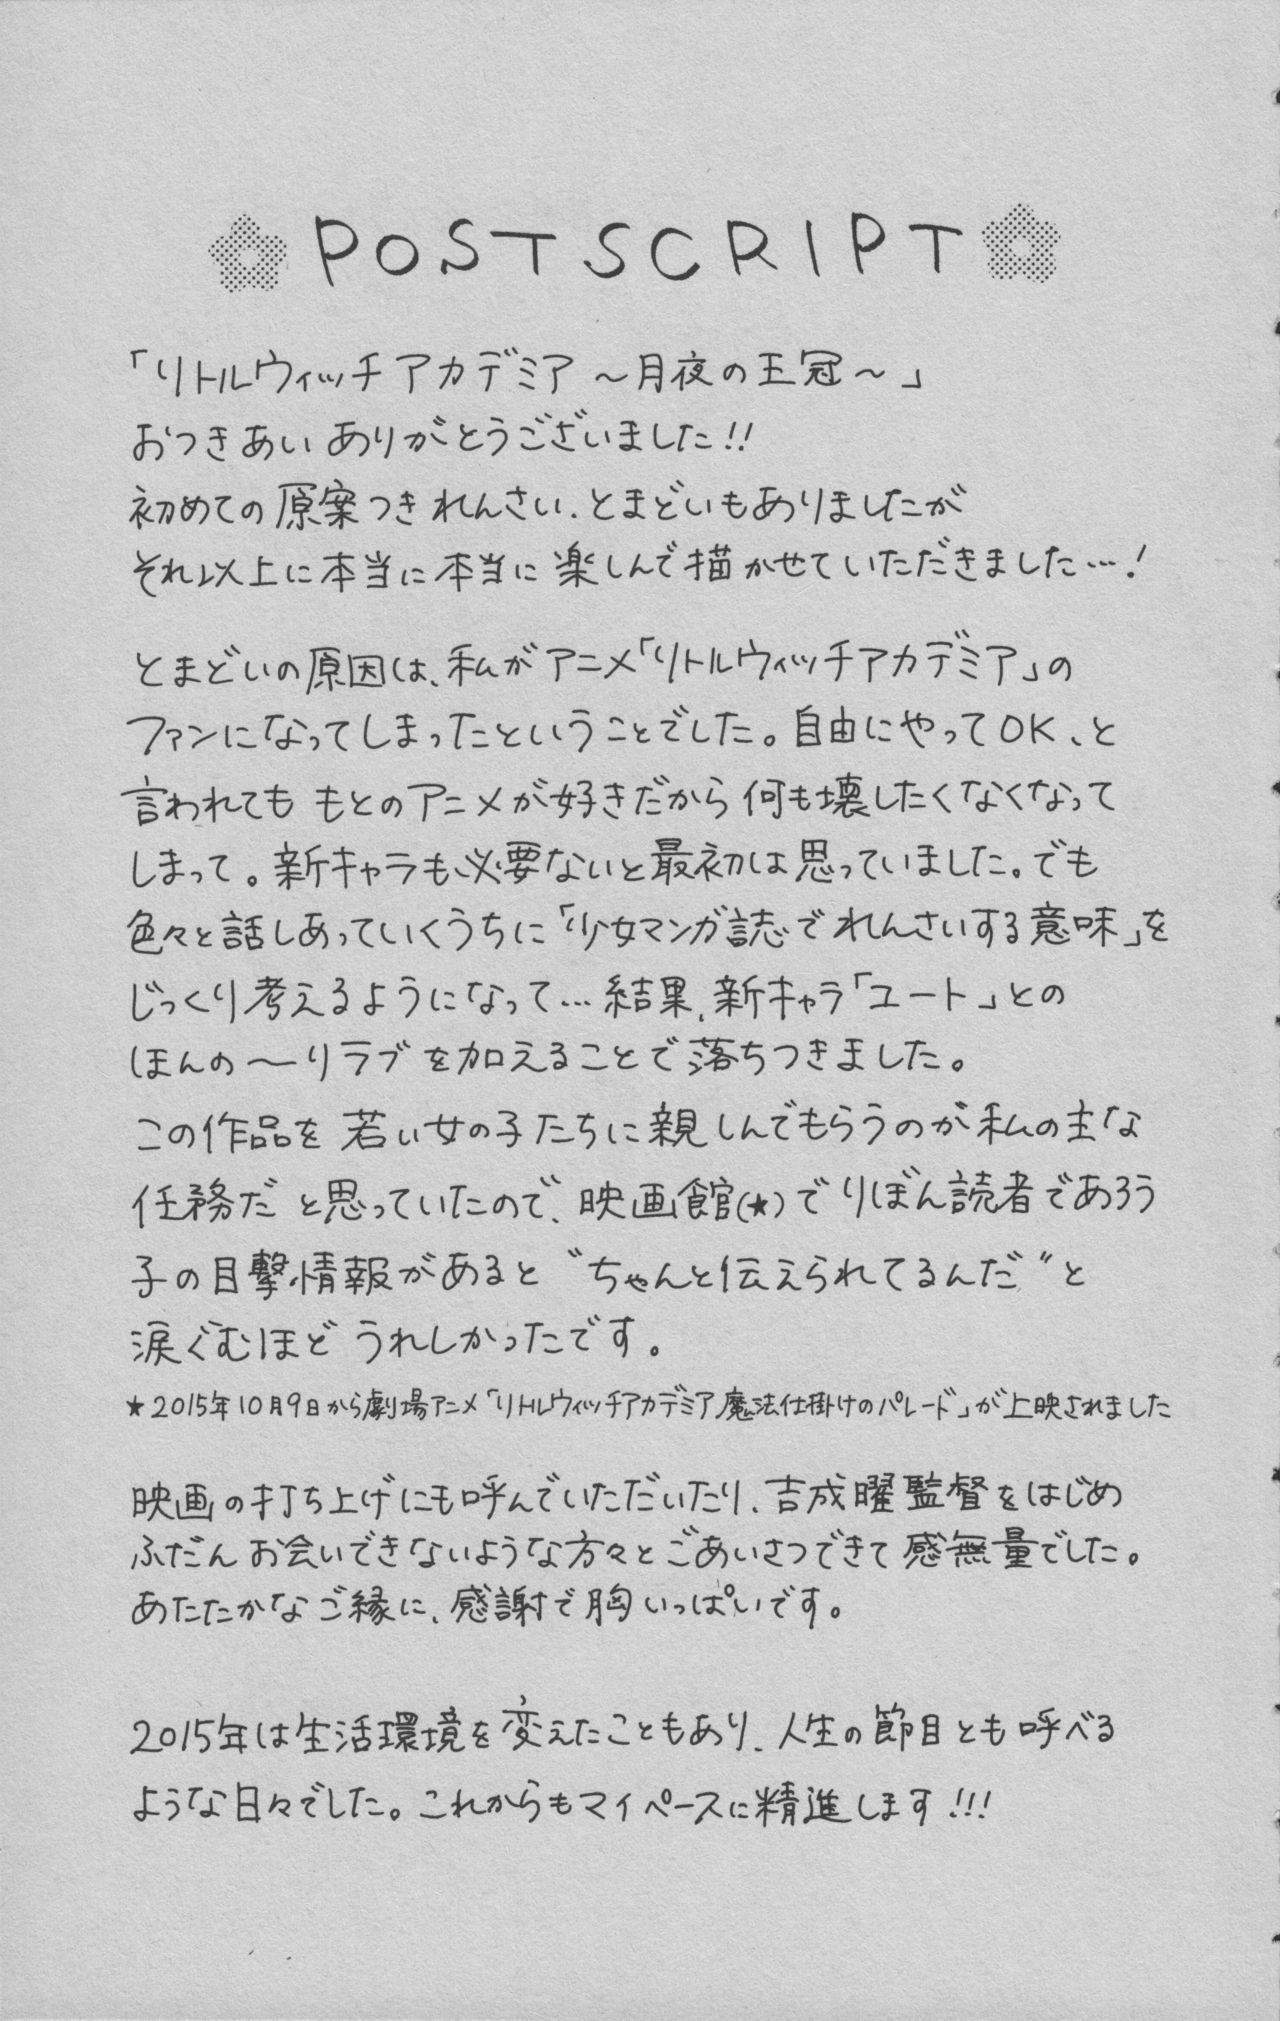 POSTSCRIPT
「リトルウィッチアカデミア ～月夜の王冠～」
おつきあい ありがとうございました!!
初めての原案つき れんさい、とまどいもありましたが
それ以上に本当に本当に 楽しんで描かせていただきました…!
とまどいの原因は、私がアニメ「リトルウィッチアカデミア」の
ファンになってしまったということでした。自由にやってOK、と
言われても もとのアニメが好きだから 何も壊したくなくなって
しまって。新キャラも必要ないと最初は思っていました。でも
色々と話しあっていくうちに「少女マンガ誌でれんさいする意味」を
じっくり考えるようになって…結果、新キャラ「ユート」との
ほんの〜りラブを加えることで落ちつきました。
この作品を 若い女の子たちに親しんでもらうのが私の主な
任務だ と思っていたので、映画館(★)でりぼん読者であろう
子の目撃情報があると〝ちゃんと伝えられてるんだ〟と
涙ぐむほど うれしかったです。
★2015年10月9日から劇場アニメ「リトルウィッチアカデミア 魔法仕掛けのパレード」が上映されました
映画の打ち上げにも呼んでいただいたり、吉成曜監督をはじめ
ふだん お会いできないような方々とごあいさつできて 感無量でした。
あたたかなご縁に、感謝で胸いっぱいです。
2015年は生活環境を変えたこともあり、人生の節目とも呼べる
ような日々でした。これからもマイペースに精進します!!!